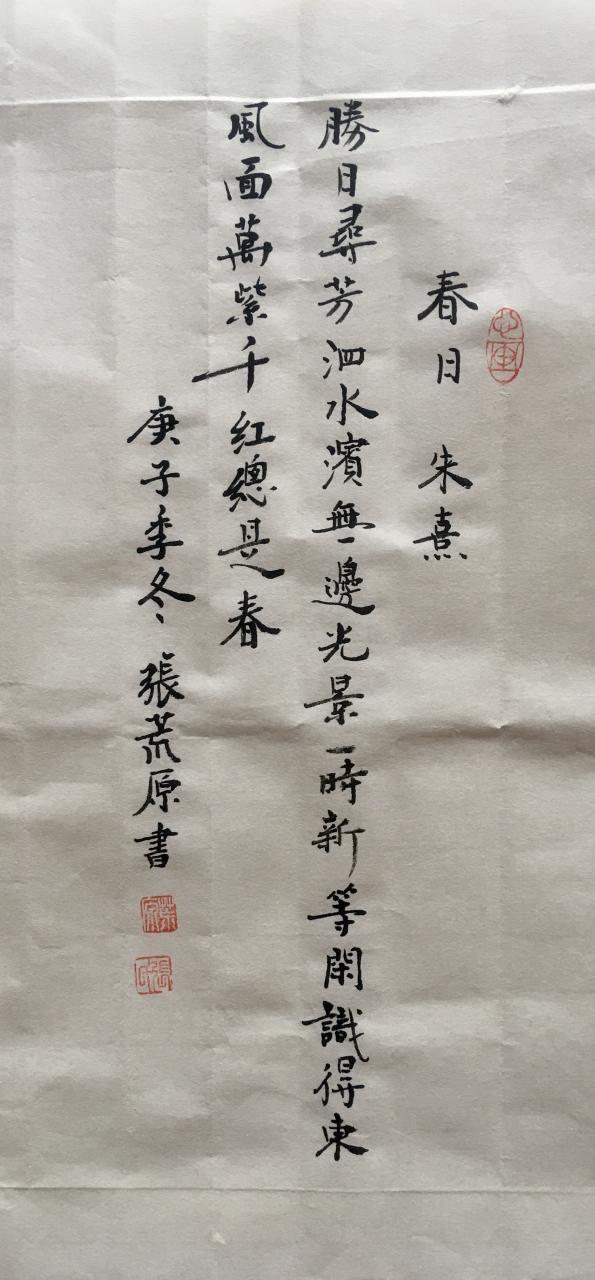 春日 朱熹
勝日尋芳泗水濱無邊光景一時新等閑識得東
風面萬紫千紅總是春
庚子季冬 張荒原書
荒原
張氏